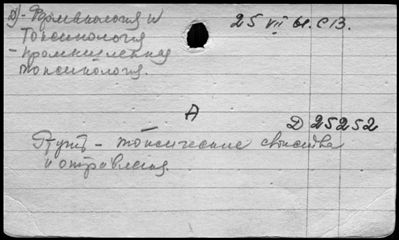 Д - Фармакология и
Токсикология
- промышленная
токсикология.
25 VII 61. СВ.
А
D 25252
Ртуть - токсические свойства
и отравления.